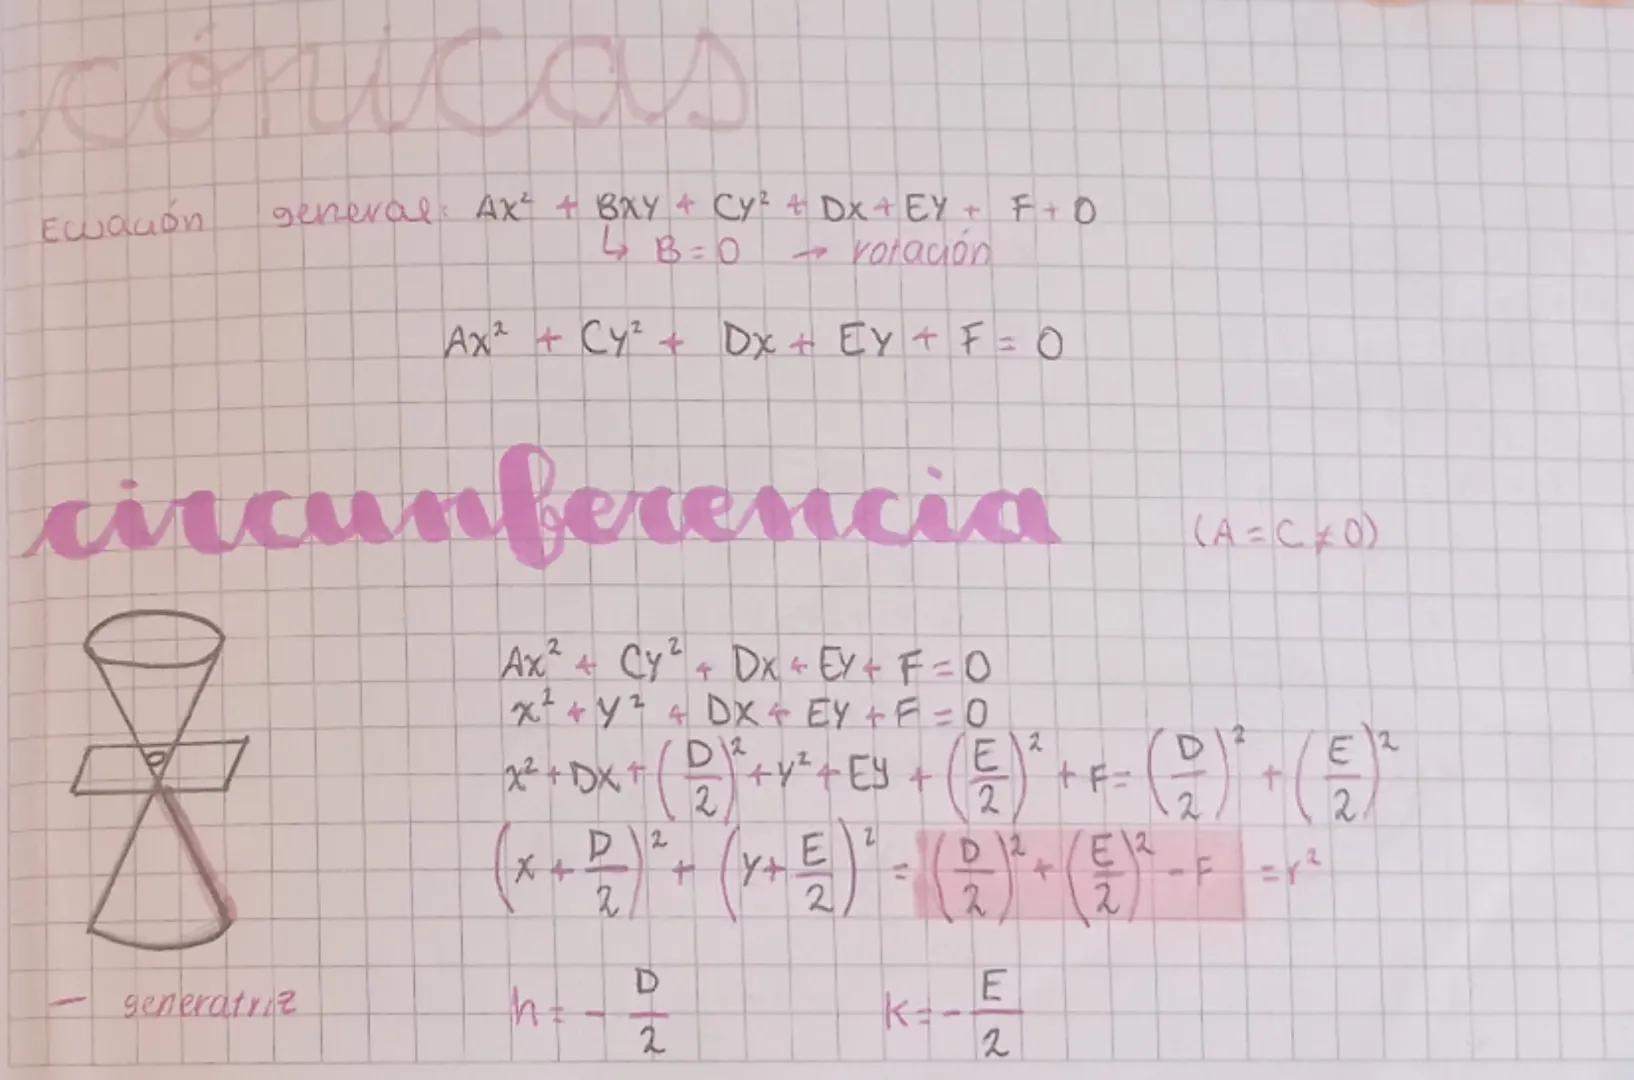 cónicas
Ecuación general: Ax² + Bxy + Cy² + Dx + Ey + F + 0
↳ B = 0 → rotación
Ax² + Cy² + Dx + Ey + F = 0
circunferencia (A = C ≠ 0)
Ax² + Cy² + Dx + Ey + F = 0
x² + y² + Dx + Ey + F = 0
x² + Dx + (D/2)² + y² + Ey + (E/2)² + F = (D/2)² + (E/2)²
(x + D/2)² + (y + E/2)² = (D/2)² + (E/2)² - F = r²
— generatriz
h = - D/2 k = - E/2